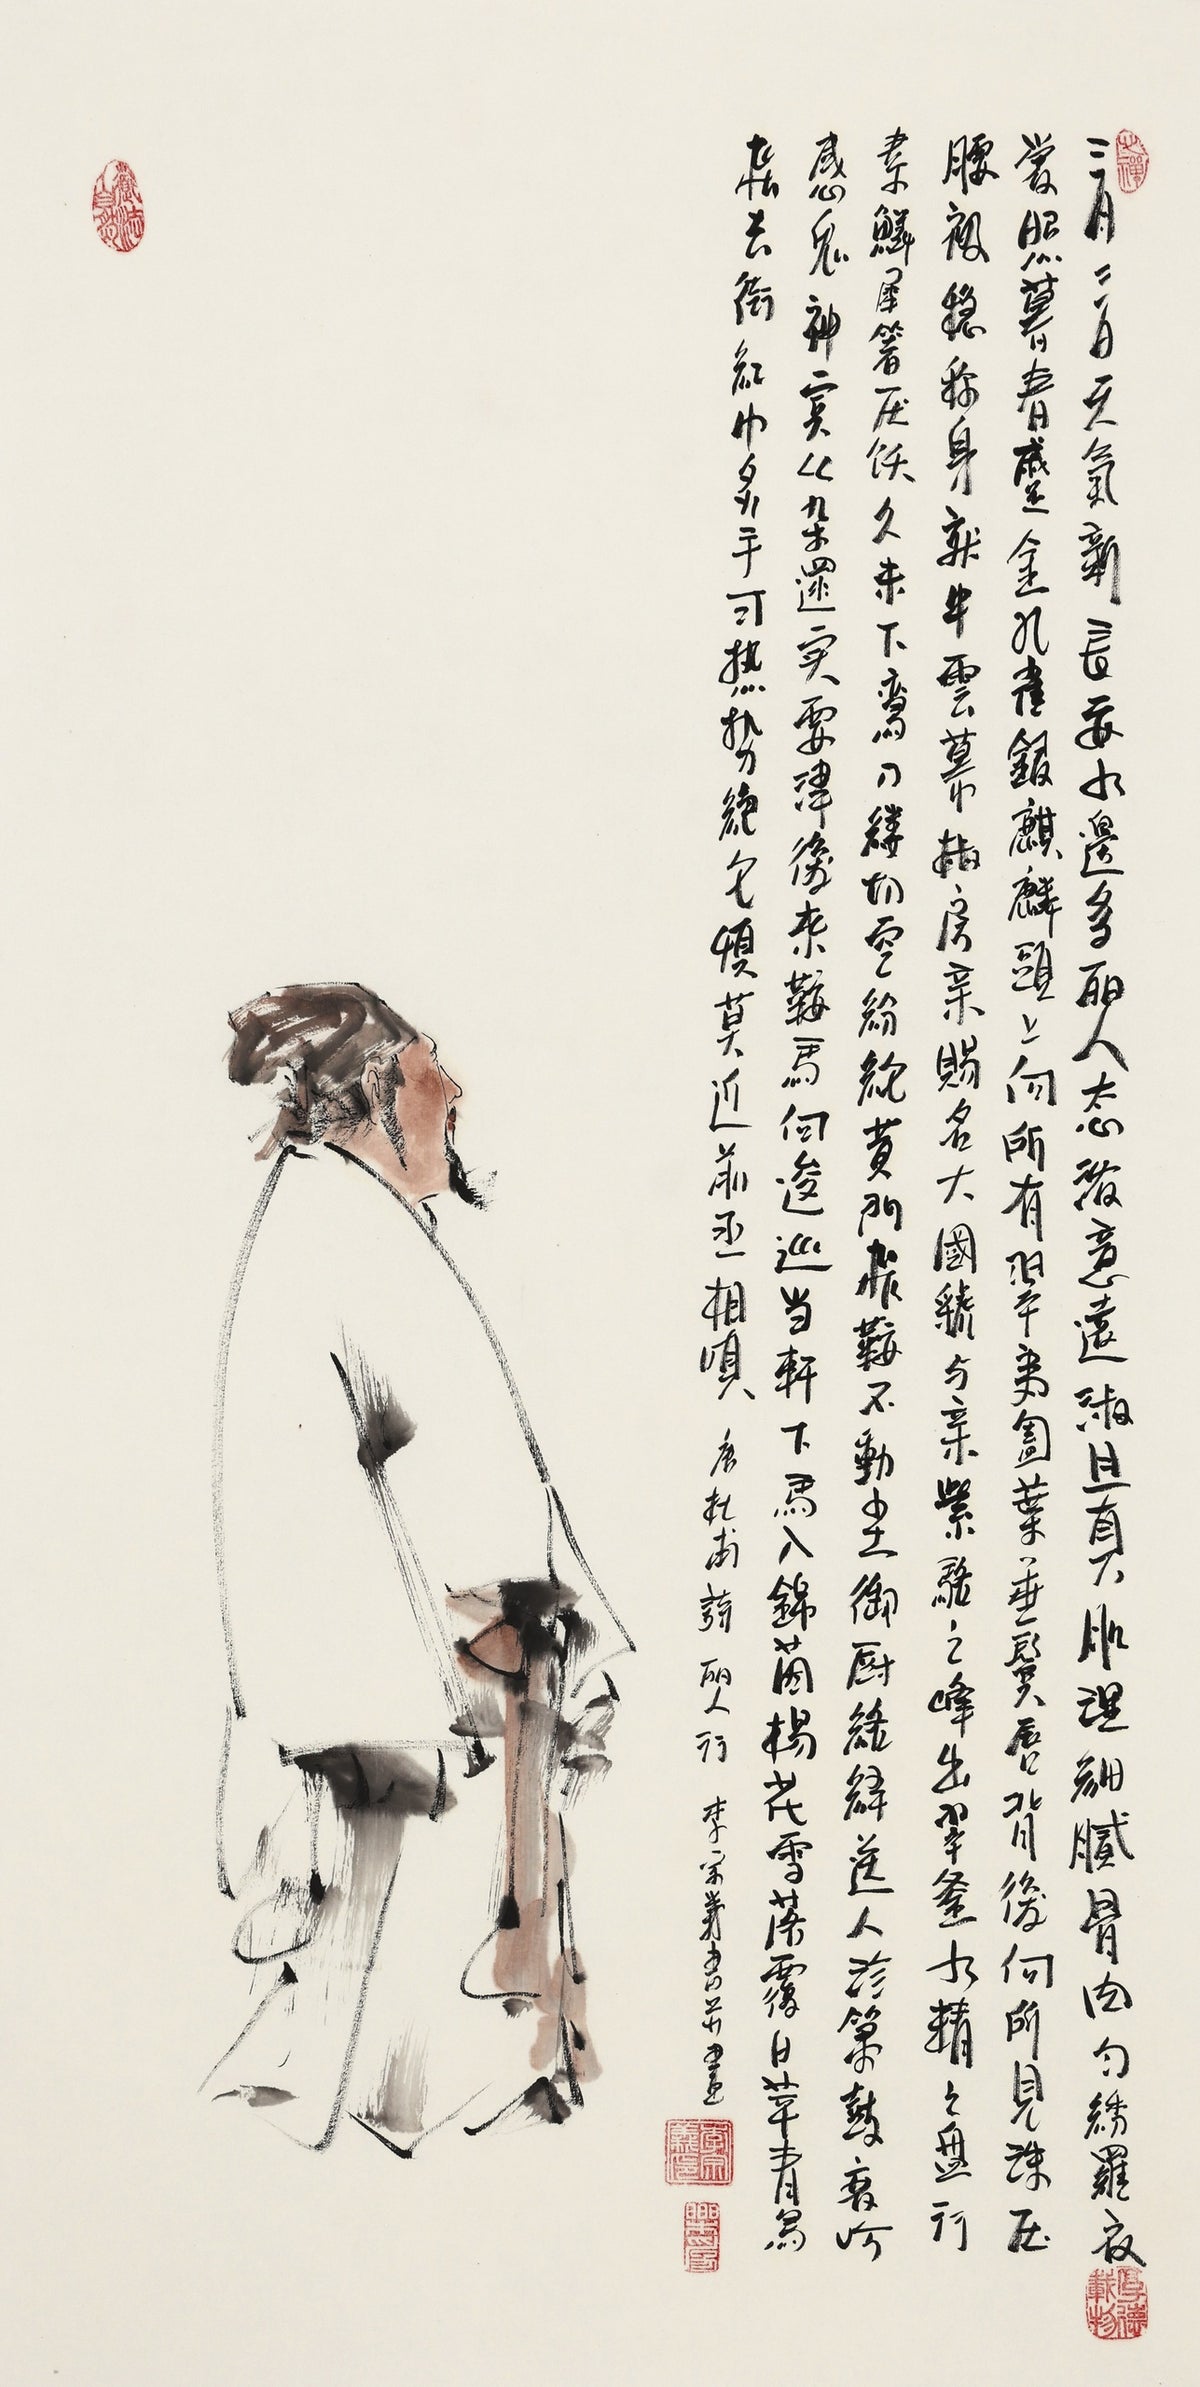 三月三日天氣新長安水邊多丽人态濃意遠淑且真肌理細膩骨肉勻繡羅衣
裳照暮春蹙金孔雀銀麒麟頭上何所有翠為匎葉垂鬢唇背後何所見珠压
腰衱穩称身就中雲幕椒房亲賜名大國虢与秦紫駝之峰出翠釜水精之盤行
素鱗犀箸厌飫久未下鸞刀縷切空紛綸黄門飛鞚不動尘御厨絡繹送八珍簫鼓哀吟
感鬼神賓从杂遝实要津後来鞍馬何逡巡当軒下馬入錦茵楊花雪落覆白蘋青鳥
飛去銜紅巾炙手可热势絕倫慎莫近前丞相嗔 唐杜甫詩 丽人行 李宗義書并畫
道法自然
李宗義印
厚德載物